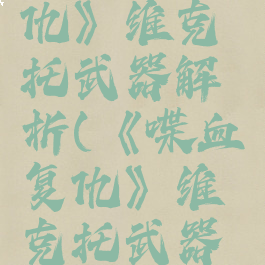 仇》维克
托武器解
析(《喋血
复仇》维
克托武器